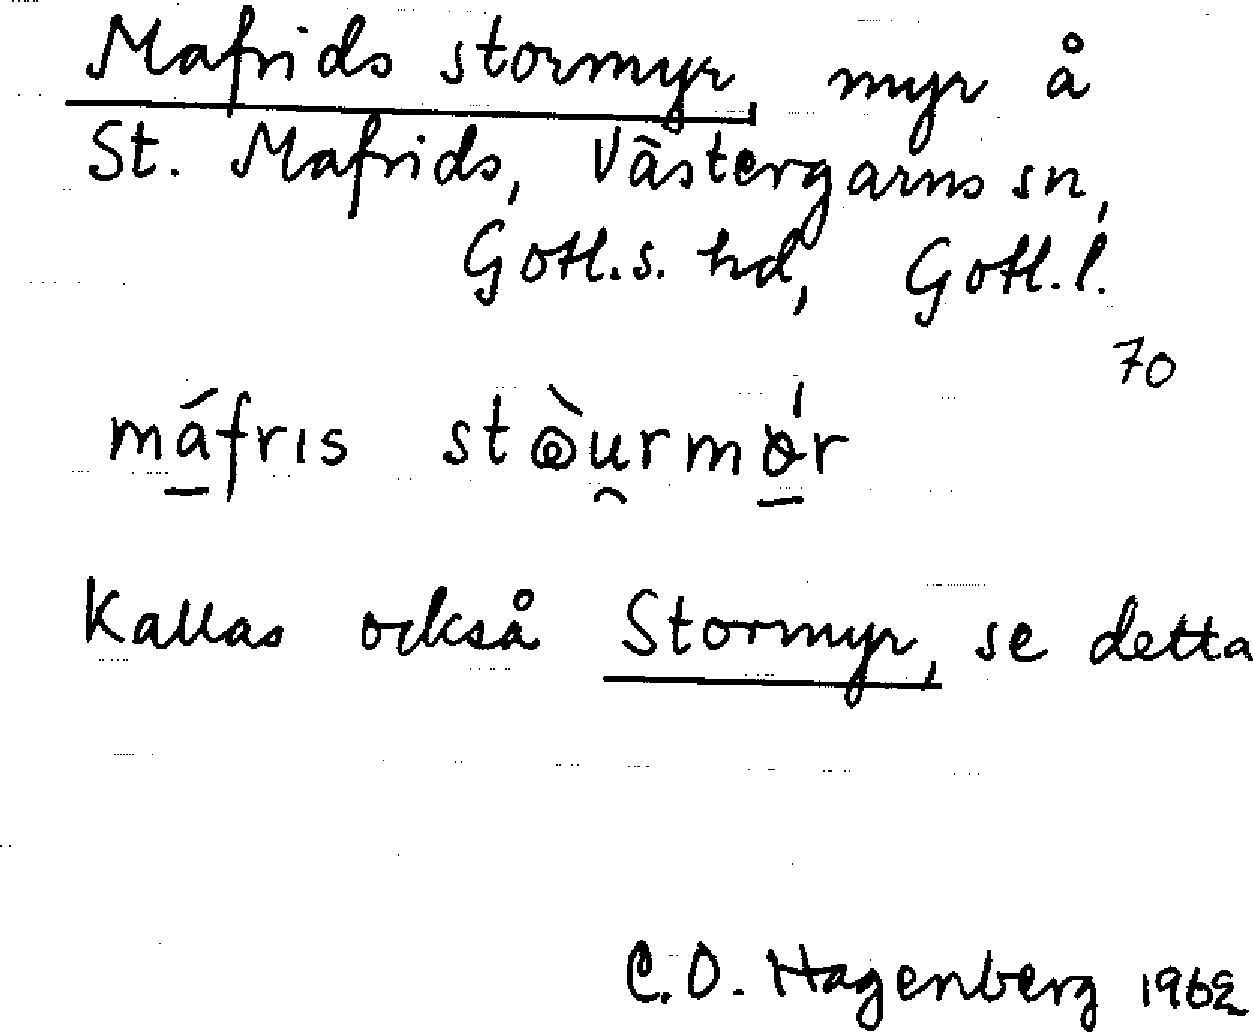 Mafrids stormyr, myr å
St. Mafrids, Västergarns sn,
Gotl.s. hd, Gotl.l.
70
máfris stòurmǿr
Kallas också Stormyr, se detta
C.O. Hagenberg 1962